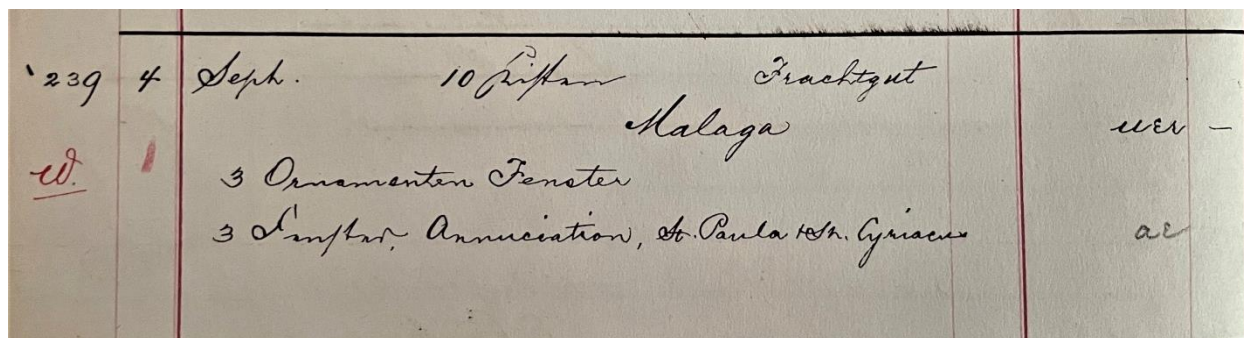 239 4 Seph. 10 Kisten Frachtgut
Malaga uer –
W.
3 Ornamenten Fenster
3 Fenster, Annuciation, St. Paula & St. Cyriacus ae